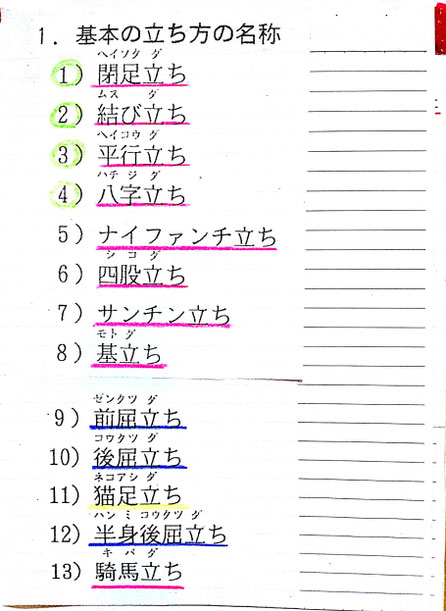 1．基本の立ち方の名称
ヘイソク ダ
1）閉足立ち
ムス ダ
2）結び立ち
ヘイコウ ダ
3）平行立ち
ハチ ジ ダ
4）八字立ち
5）ナイファンチ立ち
シ コ ダ
6）四股立ち
7）サンチン立ち
モト ダ
8）基立ち
ゼンクツ ダ
9）前屈立ち
コウクツ ダ
10）後屈立ち
ネコアシ ダ
11）猫足立ち
ハン ミ コウクツ ダ
12）半身後屈立ち
キ バ ダ
13）騎馬立ち